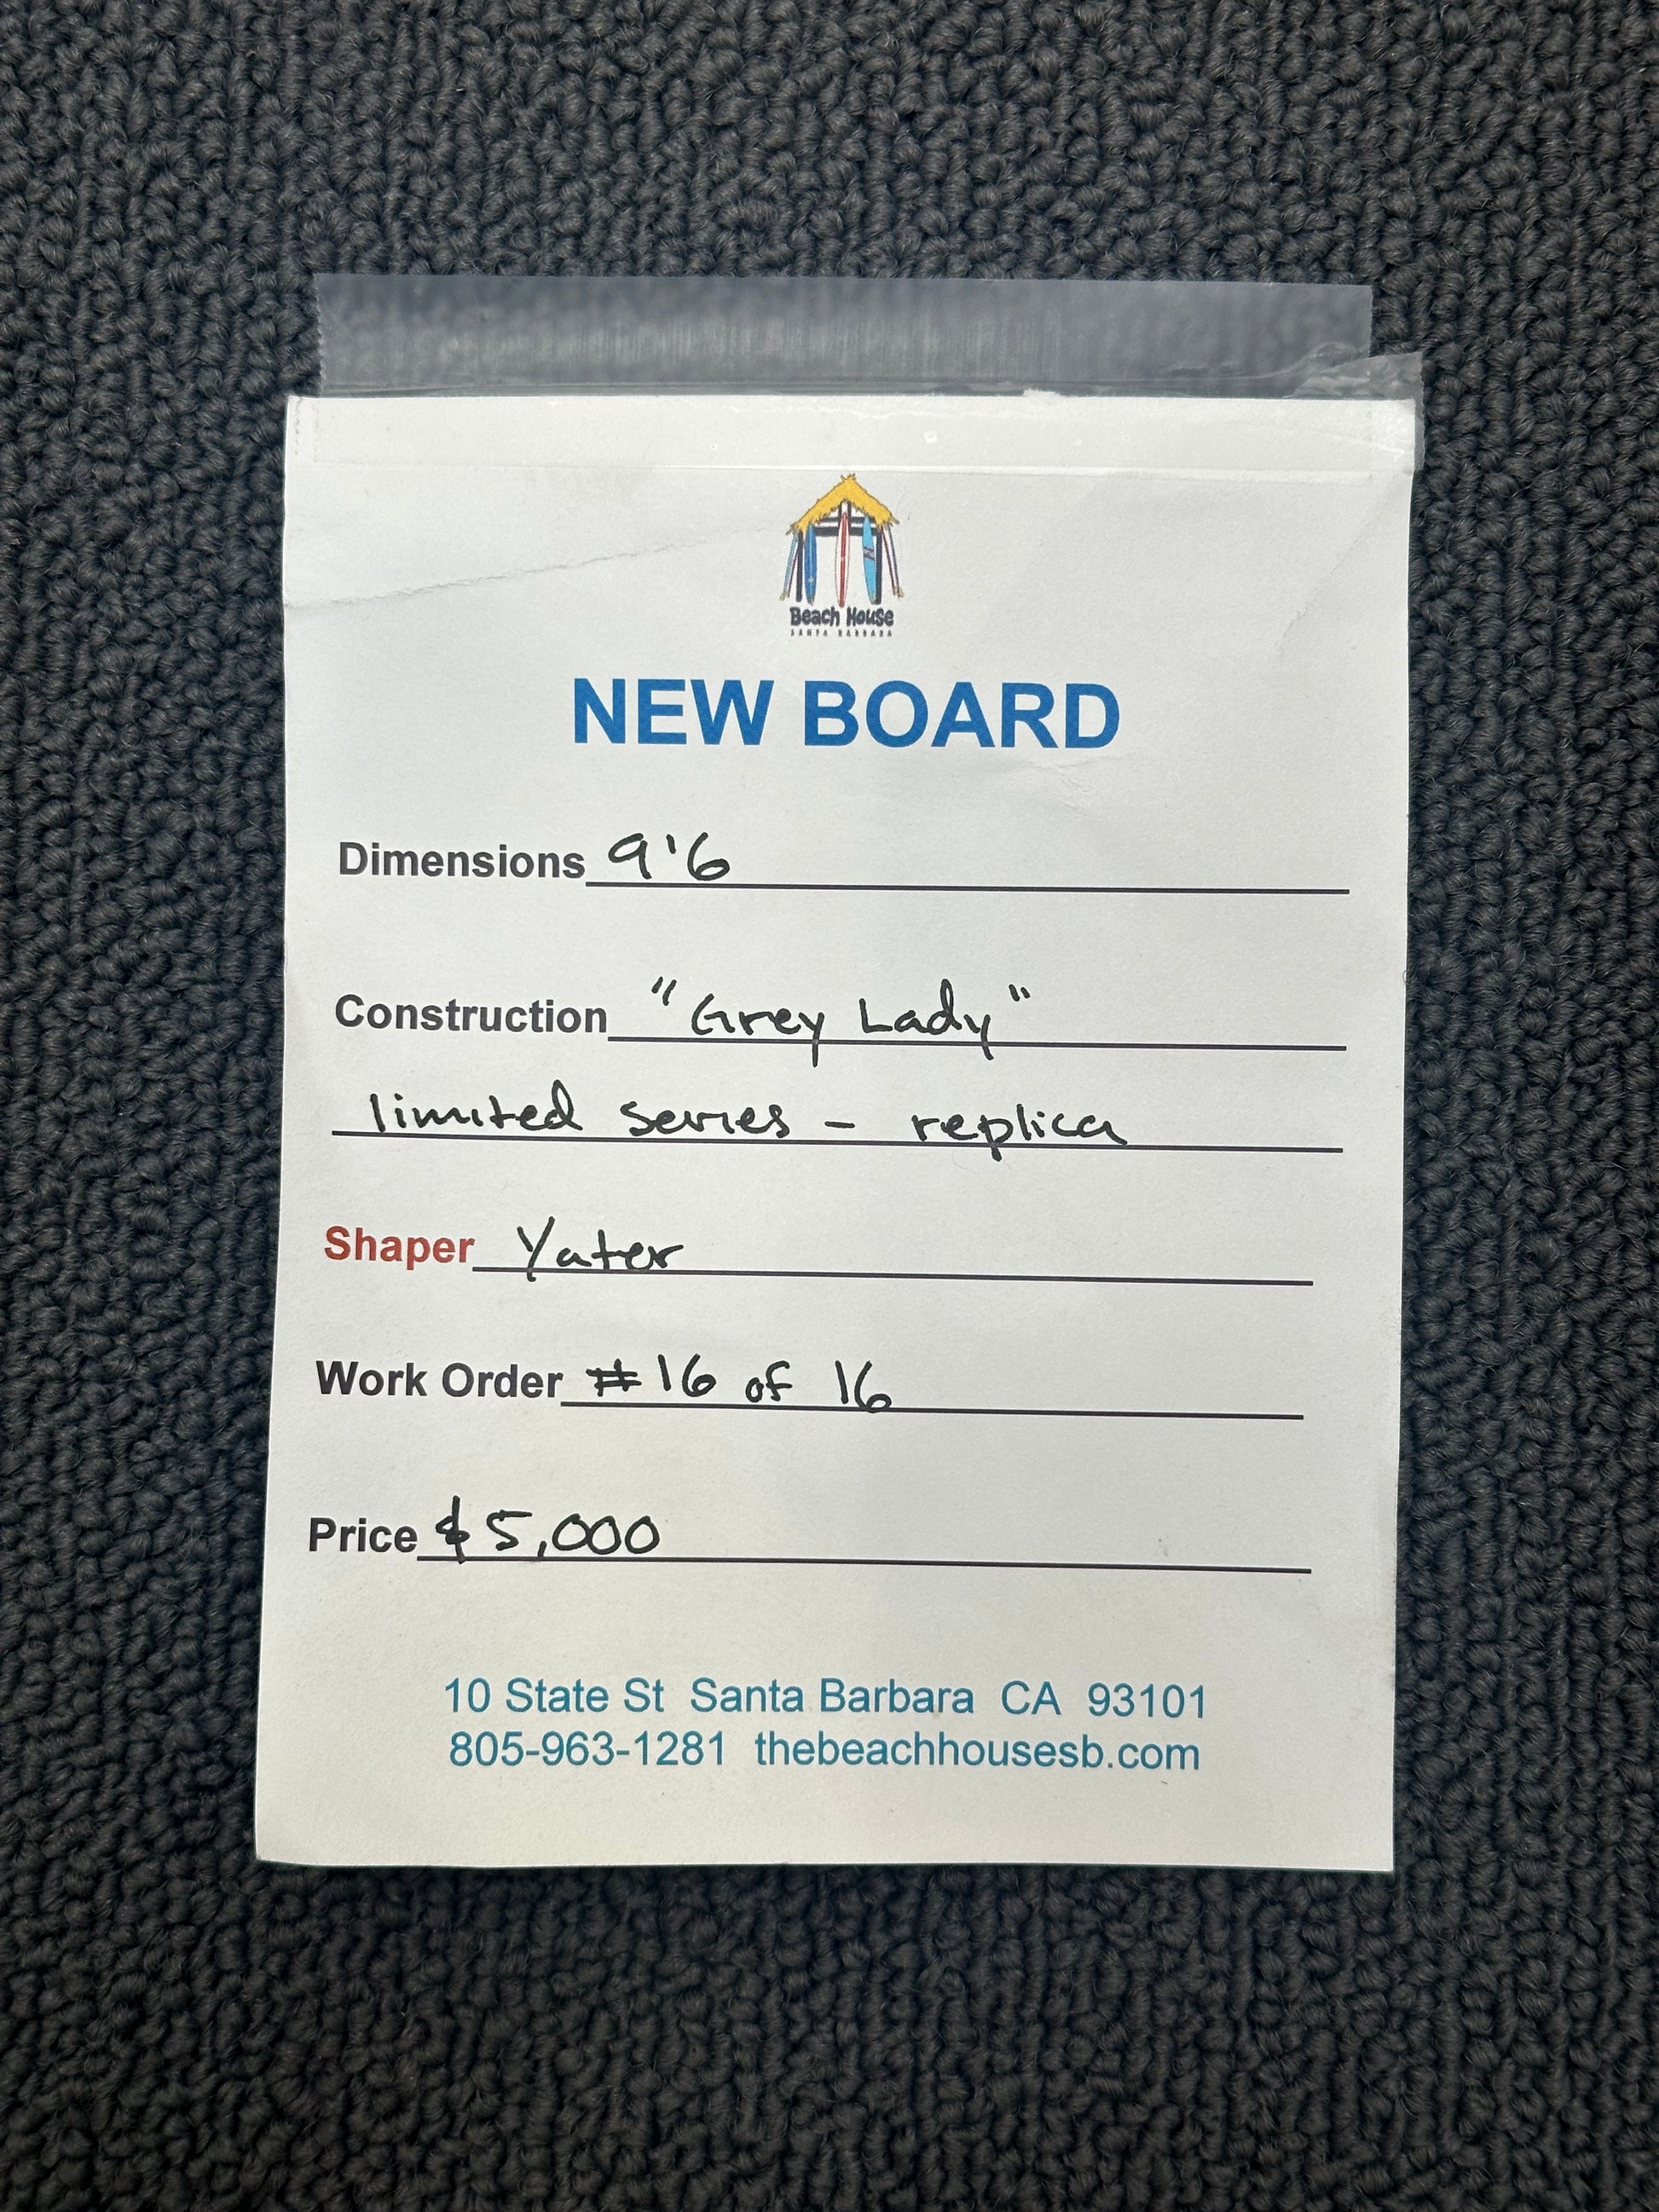 Beach House
SANTA BARBARA
NEW BOARD
Dimensions 9'6
Construction "Grey Lady"
limited series - replica
Shaper Yater
Work Order #16 of 16
Price $5,000
10 State St Santa Barbara CA 93101
805-963-1281 thebeachhousesb.com